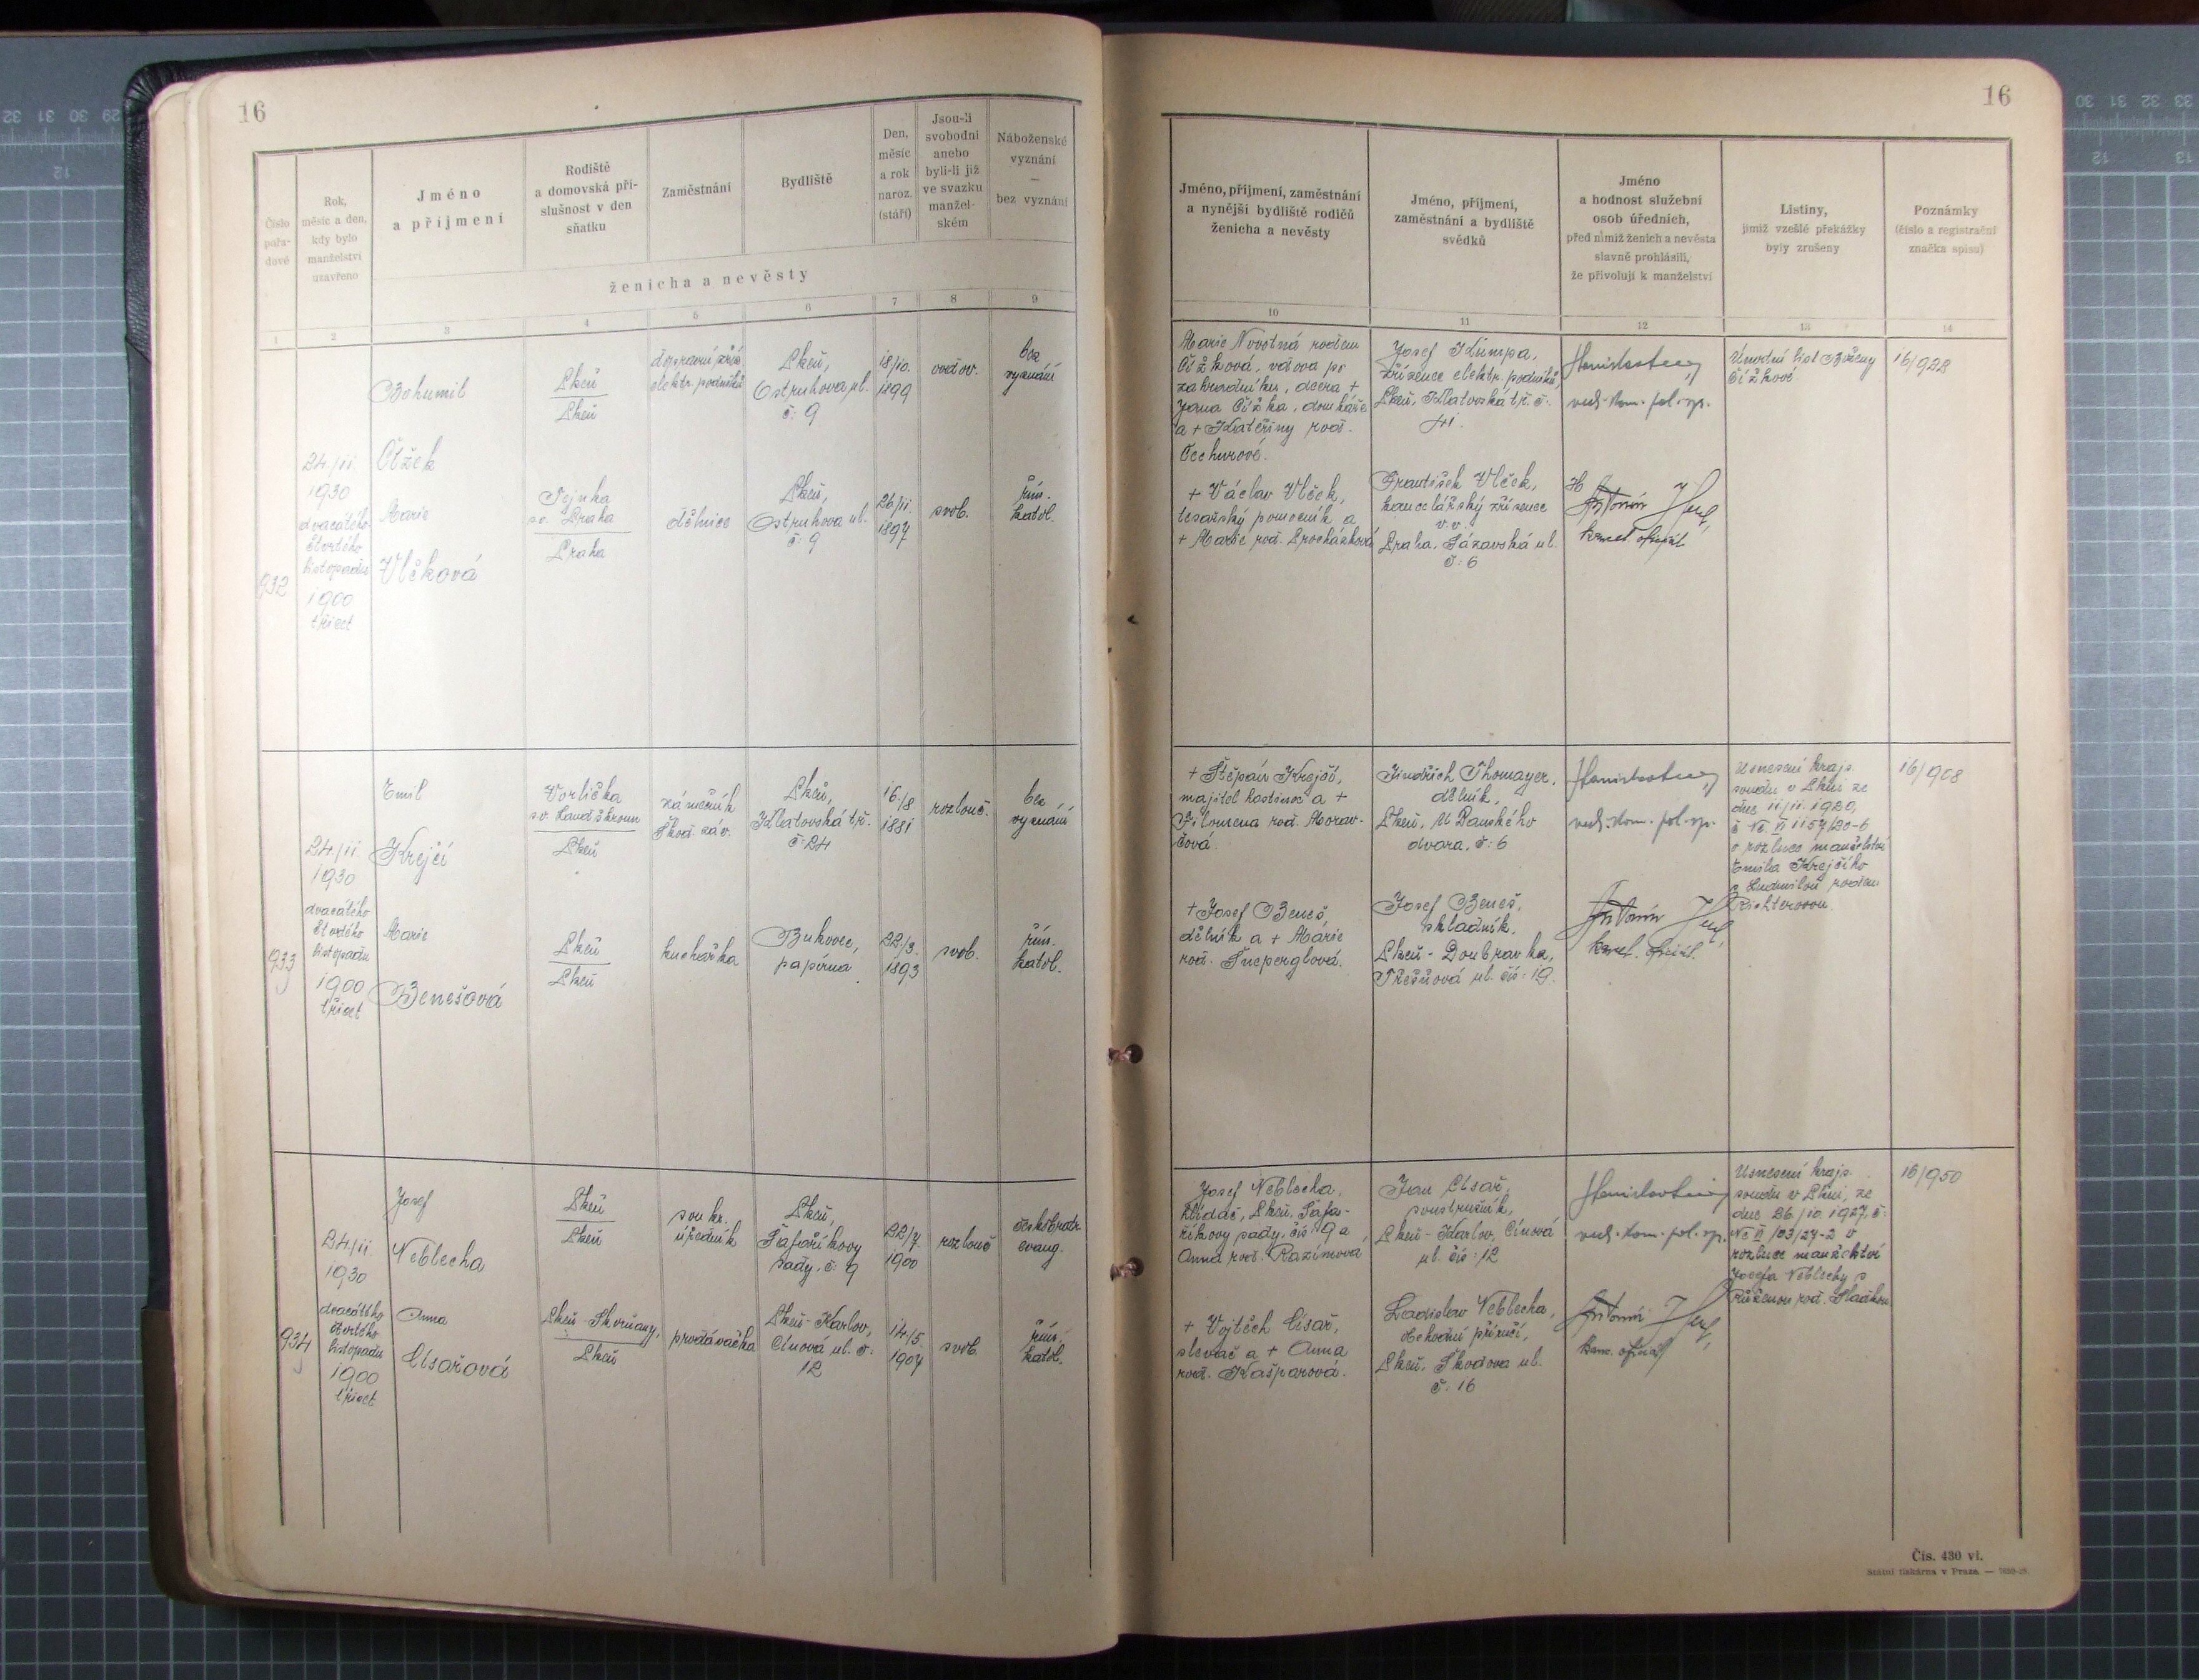 16
Číslo
pořa-
dové
Rok,
měsíc a den,
kdy bylo
manželství
uzavřeno
Jméno
a příjmení
Rodiště
a domovská pří-
slušnost v den
sňatku
Zaměstnání
Bydliště
Den,
měsíc
a rok
naroz.
(stáří)
Jsou-li
svobodni
anebo
byli-li již
ve svazku
manžel-
ském
Náboženské
vyznání
—
bez vyznání
ženicha a nevěsty
1
2
3
4
5
6
7
8
9
932
24./11.
1930
dvacátého
čtvrtého
listopadu
1900
třicet
Bohumil
Čížek
Plzeň
Plzeň
dopravní zříz.
elektr. podniků
Plzeň,
Ostruhova ul.
č. 9
18/10.
1899
vdov.
bez
vyznání
Marie
Vlčková
Tejnka
s.o. Praha
Praha
dělnice
Plzeň,
Ostruhova ul.
č. 9
26/11.
1897
svob.
řím.
katol.
933
24./11.
1930
dvacátého
čtvrtého
listopadu
1900
třicet
Emil
Krejčí
Vorlička
s.o. Landškroun
Plzeň
zámečník
Škod. záv.
Plzeň,
Klatovská tř.
č. 24
16./8
1881
rozlouč.
bez
vyznání
Marie
Benešová
Plzeň
Plzeň
kuchařka
Bukovec,
papírna
22/3.
1893
svob.
řím.
katol.
934
24./11.
1930
dvacátého
čtvrtého
listopadu
1900
třicet
Josef
Neblecha
Plzeň
Plzeň
soukr.
úředník
Plzeň,
Šafaříkovy
sady, č. 9
22/7.
1900
rozlouč
českobratr.
evang.
Anna
Císařová
Plzeň - Skvrňany,
Plzeň
prodavačka
Plzeň - Karlov,
Cínová ul. č.
12
14/5.
1907
svob.
řím.
katol.
16
Jméno, příjmení, zaměstnání
a nynější bydliště rodičů
ženicha a nevěsty
Jméno, příjmení,
zaměstnání a bydliště
svědků
Jméno
a hodnost služební
osob úředních,
před nimiž ženich a nevěsta
slavně prohlásili,
že přivolují k manželství
Listiny,
jimiž vzešlé překážky
byly zrušeny
Poznámky
(číslo a registrační
značka spisu)
10
11
12
13
14
Marie Novotná rodem
Čížková, vdova po
zahradníku, dcera +
Jana Čížka, domkáře
a + Kateřiny rod.
Čechurové.
Josef Klumpa,
zřízenec elektr. podniků,
Plzeň, Klatovská tř. č.
41.
ved. kom. pol. sp.
Úmrtní list Boženy
Čížkové.
16/922
+ Václav Vlček,
tesařský pomocník a
+ Marie rod. Procházková
František Vlček,
kancelářský zřízenec
v.v.
Praha, Sázavská ul.
č. 6
Antonín
kancel. oficiál
+ Štěpán Krejčí,
majitel hostince a +
Filomena rod. Morav-
čová.
Jindřich Thomayer,
dělník,
Plzeň, U Panského
dvora, č. 6
ved. kom. pol. sp.
Usnesení krajs.
soudu v Plzni ze
dne 11/11. 1920,
č Nc. VI 1157/20-6
o rozluce manželství
Emila Krejčího
s Ludmilou rodem
Richterovou.
16/908
+ Josef Beneš,
dělník a + Marie
rod. Šneperglová.
Josef Beneš,
skladník,
Plzeň - Doubravka,
Třešňová ul. čís. 19.
Antonín
kancel. oficiál.
Josef Neblecha,
hlídač, Plzeň, Šafa-
říkovy sady, čís. 9 a
Anna rod. Razímová
Jan Císař,
soustružník,
Plzeň - Karlov, Cínová
ul. čís. 12
ved. kom. pol. sp.
Usnesení krajs.
soudu v Plzni, ze
dne 26/10. 1927, č.
Nc VI 103/27-2 o
rozluce manželství
Josefa Neblechy s
Růženou rod. Sladkou
16/950
+ Vojtěch Císař,
slevač a + Anna
rod. Kašparová.
Ladislav Neblecha,
obchodní příručí,
Plzeň, Škodova ul.
č. 16
Antonín
kanc. oficiál
Čís. 430 vl.
Státní tiskárna v Praze. —